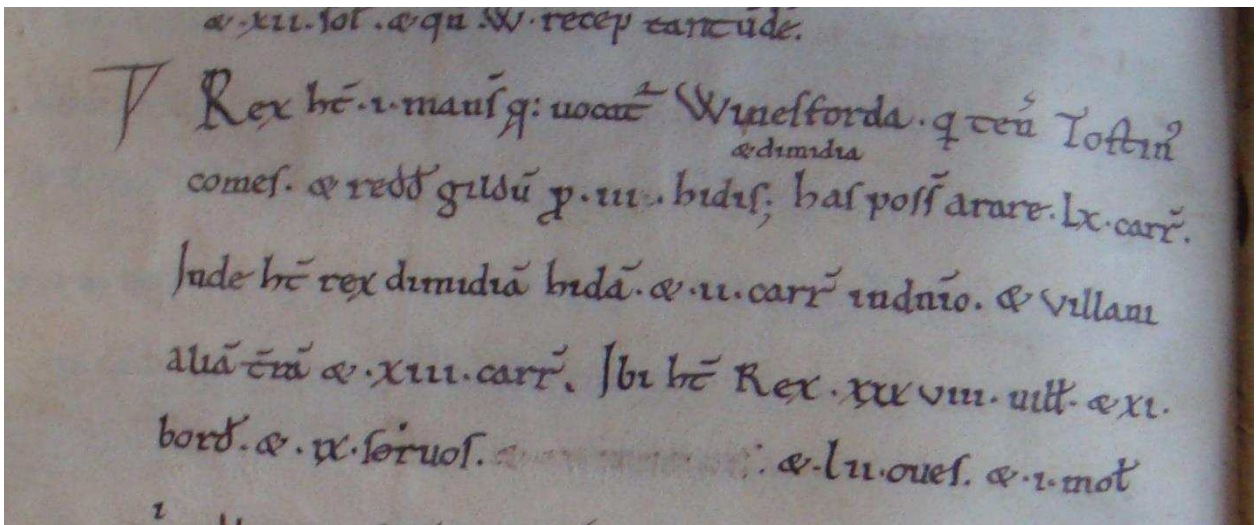 & .xii. sol. & qn̄ .W. recep̄ tantūdē.
Rex hēt .i. mans̄ q: uocat̄ Winesforda . q̄ tēn Tostin᷒
& dimidia
comes. & redđ gildū p̱ .iii. hidis; has poss̄ arare .lx. carr̄.
Inde hēt rex dimidiā hidā. & .ii. carr̄ indnīo. & villani
aliā t̄rā & .xiii. carr̄. Ibi hēt Rex .xxxviii. uilł. & xi.
borđ. & .ix. seruos. & .lii. oues. & .i. mol̄